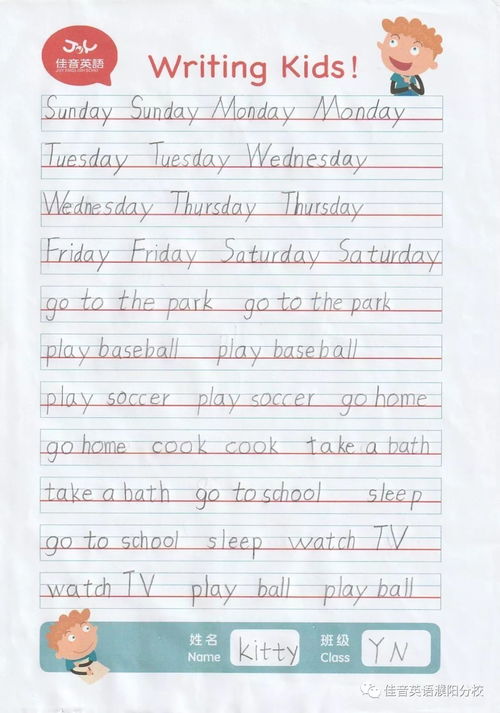 Joy
佳音英語
JOY ENGLISH SCHOOL
Writing Kids!
Sunday Sunday Monday Monday
Tuesday Tuesday Wednesday
Wednesday Thursday Thursday
Friday Friday Saturday Saturday
go to the park go to the park
play baseball play baseball
play soccer play soccer go home
go home cook cook take a bath
take a bath go to school sleep
go to school sleep watch TV
watch TV play ball play ball
姓名 Name kitty 班级 Class YN
佳音英语濮阳分校